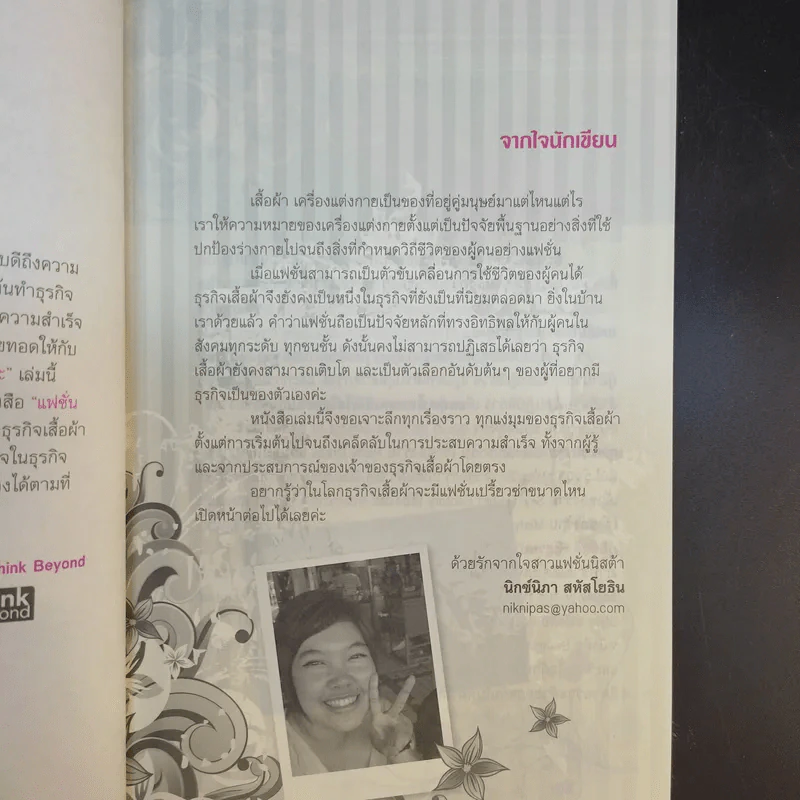 บดีถึงความ
ันทำธุรกิจ
ความสำเร็จ
ยทอดให้กับ
ะ" เล่มนี้
งสือ "แฟชั่น
ธุรกิจเสื้อผ้า
จในธุรกิจ
งได้ตามที่
hink Beyond
nk
ond
จากใจนักเขียน
เสื้อผ้า เครื่องแต่งกายเป็นของที่อยู่คู่มนุษย์มาแต่ไหนแต่ไร
เราให้ความหมายของเครื่องแต่งกายตั้งแต่เป็นปัจจัยพื้นฐานอย่างสิ่งที่ใช้
ปกป้องร่างกายไปจนถึงสิ่งที่กำหนดวิถีชีวิตของผู้คนอย่างแฟชั่น
เมื่อแฟชั่นสามารถเป็นตัวขับเคลื่อนการใช้ชีวิตของผู้คนได้
ธุรกิจเสื้อผ้าจึงยังคงเป็นหนึ่งในธุรกิจที่ยังเป็นที่นิยมตลอดมา ยิ่งในบ้าน
เราด้วยแล้ว คำว่าแฟชั่นถือเป็นปัจจัยหลักที่ทรงอิทธิพลให้กับผู้คนใน
สังคมทุกระดับ ทุกชนชั้น ดังนั้นคงไม่สามารถปฏิเสธได้เลยว่า ธุรกิจ
เสื้อผ้ายังคงสามารถเติบโต และเป็นตัวเลือกอันดับต้นๆ ของผู้ที่อยากมี
ธุรกิจเป็นของตัวเองค่ะ
หนังสือเล่มนี้จึงขอเจาะลึกทุกเรื่องราว ทุกแง่มุมของธุรกิจเสื้อผ้า
ตั้งแต่การเริ่มต้นไปจนถึงเคล็ดลับในการประสบความสำเร็จ ทั้งจากผู้รู้
และจากประสบการณ์ของเจ้าของธุรกิจเสื้อผ้าโดยตรง
อยากรู้ว่าในโลกธุรกิจเสื้อผ้าจะมีแฟชั่นเปรี้ยวซ่าขนาดไหน
เปิดหน้าต่อไปได้เลยค่ะ
ด้วยรักจากใจสาวแฟชั่นนิสต้า
นิกข์นิภา สหัสโยธิน
niknipas@yahoo.com